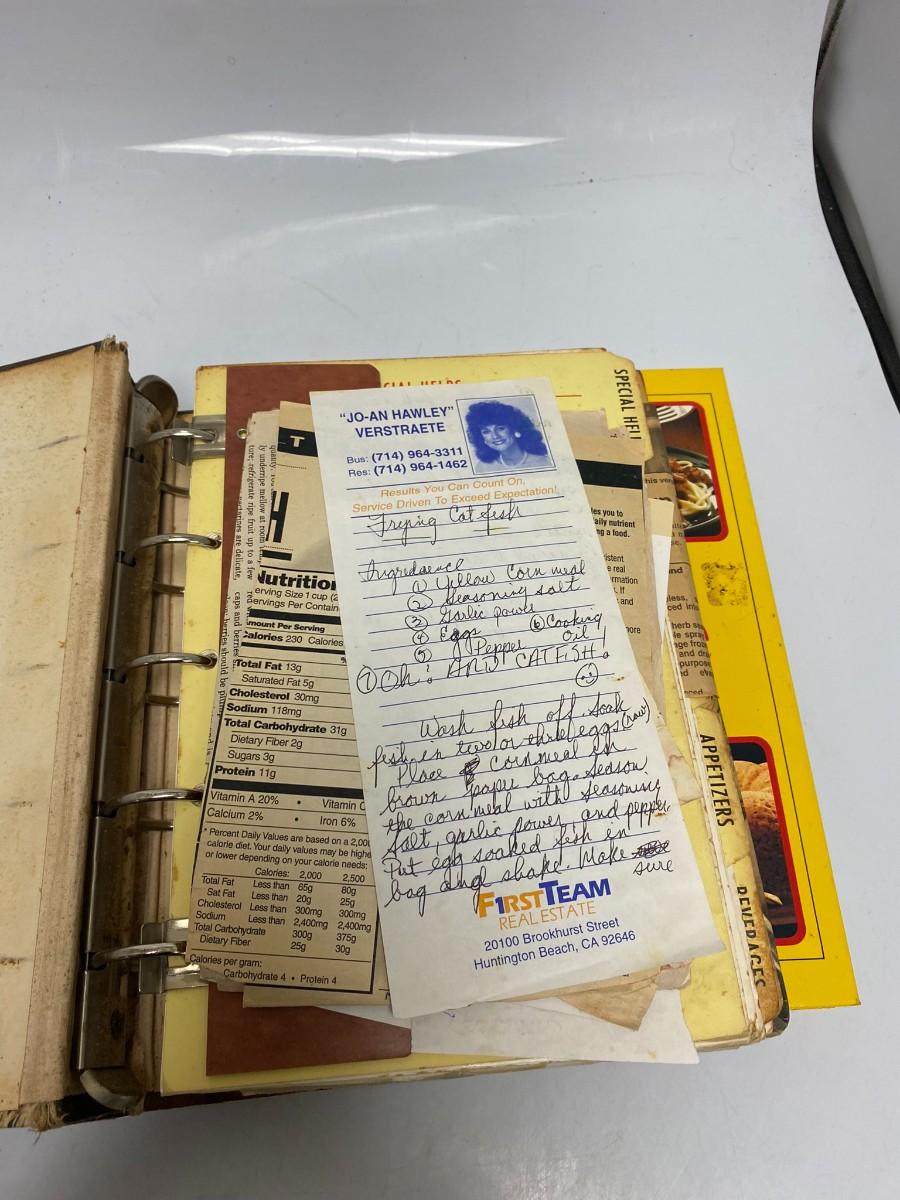 CIAL HELPS
SPECIAL HEL
"JO-AN HAWLEY"
VERSTRAETE
Bus: (714) 964-3311
Res: (714) 964-1462
Results You Can Count On,
Service Driven To Exceed Expectation!
Frying Catfish
Ingredaence
① Yellow Corn meal
② Seasoning salt
③ Garlic power
④ Eggs
⑥ Cooking Oil
⑤ Pepper
⑦ Oh! AND CATFISH!
Wash fish off. Soak
fish in two or three eggs (raw)
Place cornmeal in
brown paper bag. Season
the corn meal with seasoning
salt, garlic power, and pepper
Put egg soaked fish in
bag and shake. Make
sure
FIRSTTEAM
REAL ESTATE
20100 Brookhurst Street
Huntington Beach, CA 92646
T
H
Nutrition
erving Size 1 cup (2
ervings Per Contain
mount Per Serving
Calories 230 Calories
Total Fat 13g
Saturated Fat 5g
Cholesterol 30mg
Sodium 118mg
Total Carbohydrate 31g
Dietary Fiber 2g
Sugars 3g
Protein 11g
Vitamin A 20% • Vitamin C
Calcium 2% • Iron 6%
* Percent Daily Values are based on a 2,00
calorie diet. Your daily values may be highe
or lower depending on your calorie needs:
Calories: 2,000 2,500
Total Fat Less than 65g 80g
Sat Fat Less than 20g 25g
Cholesterol Less than 300mg 300mg
Sodium Less than 2,400mg 2,400mg
Total Carbohydrate 300g 375g
Dietary Fiber 25g 30g
Calories per gram:
Carbohydrate 4 • Protein 4
ly underripe mellow at room
ture; refrigerate ripe fruit up to a few
caps and berries
es you to
aily nutrient
ng a food.
APPETIZERS
BEVERAGES